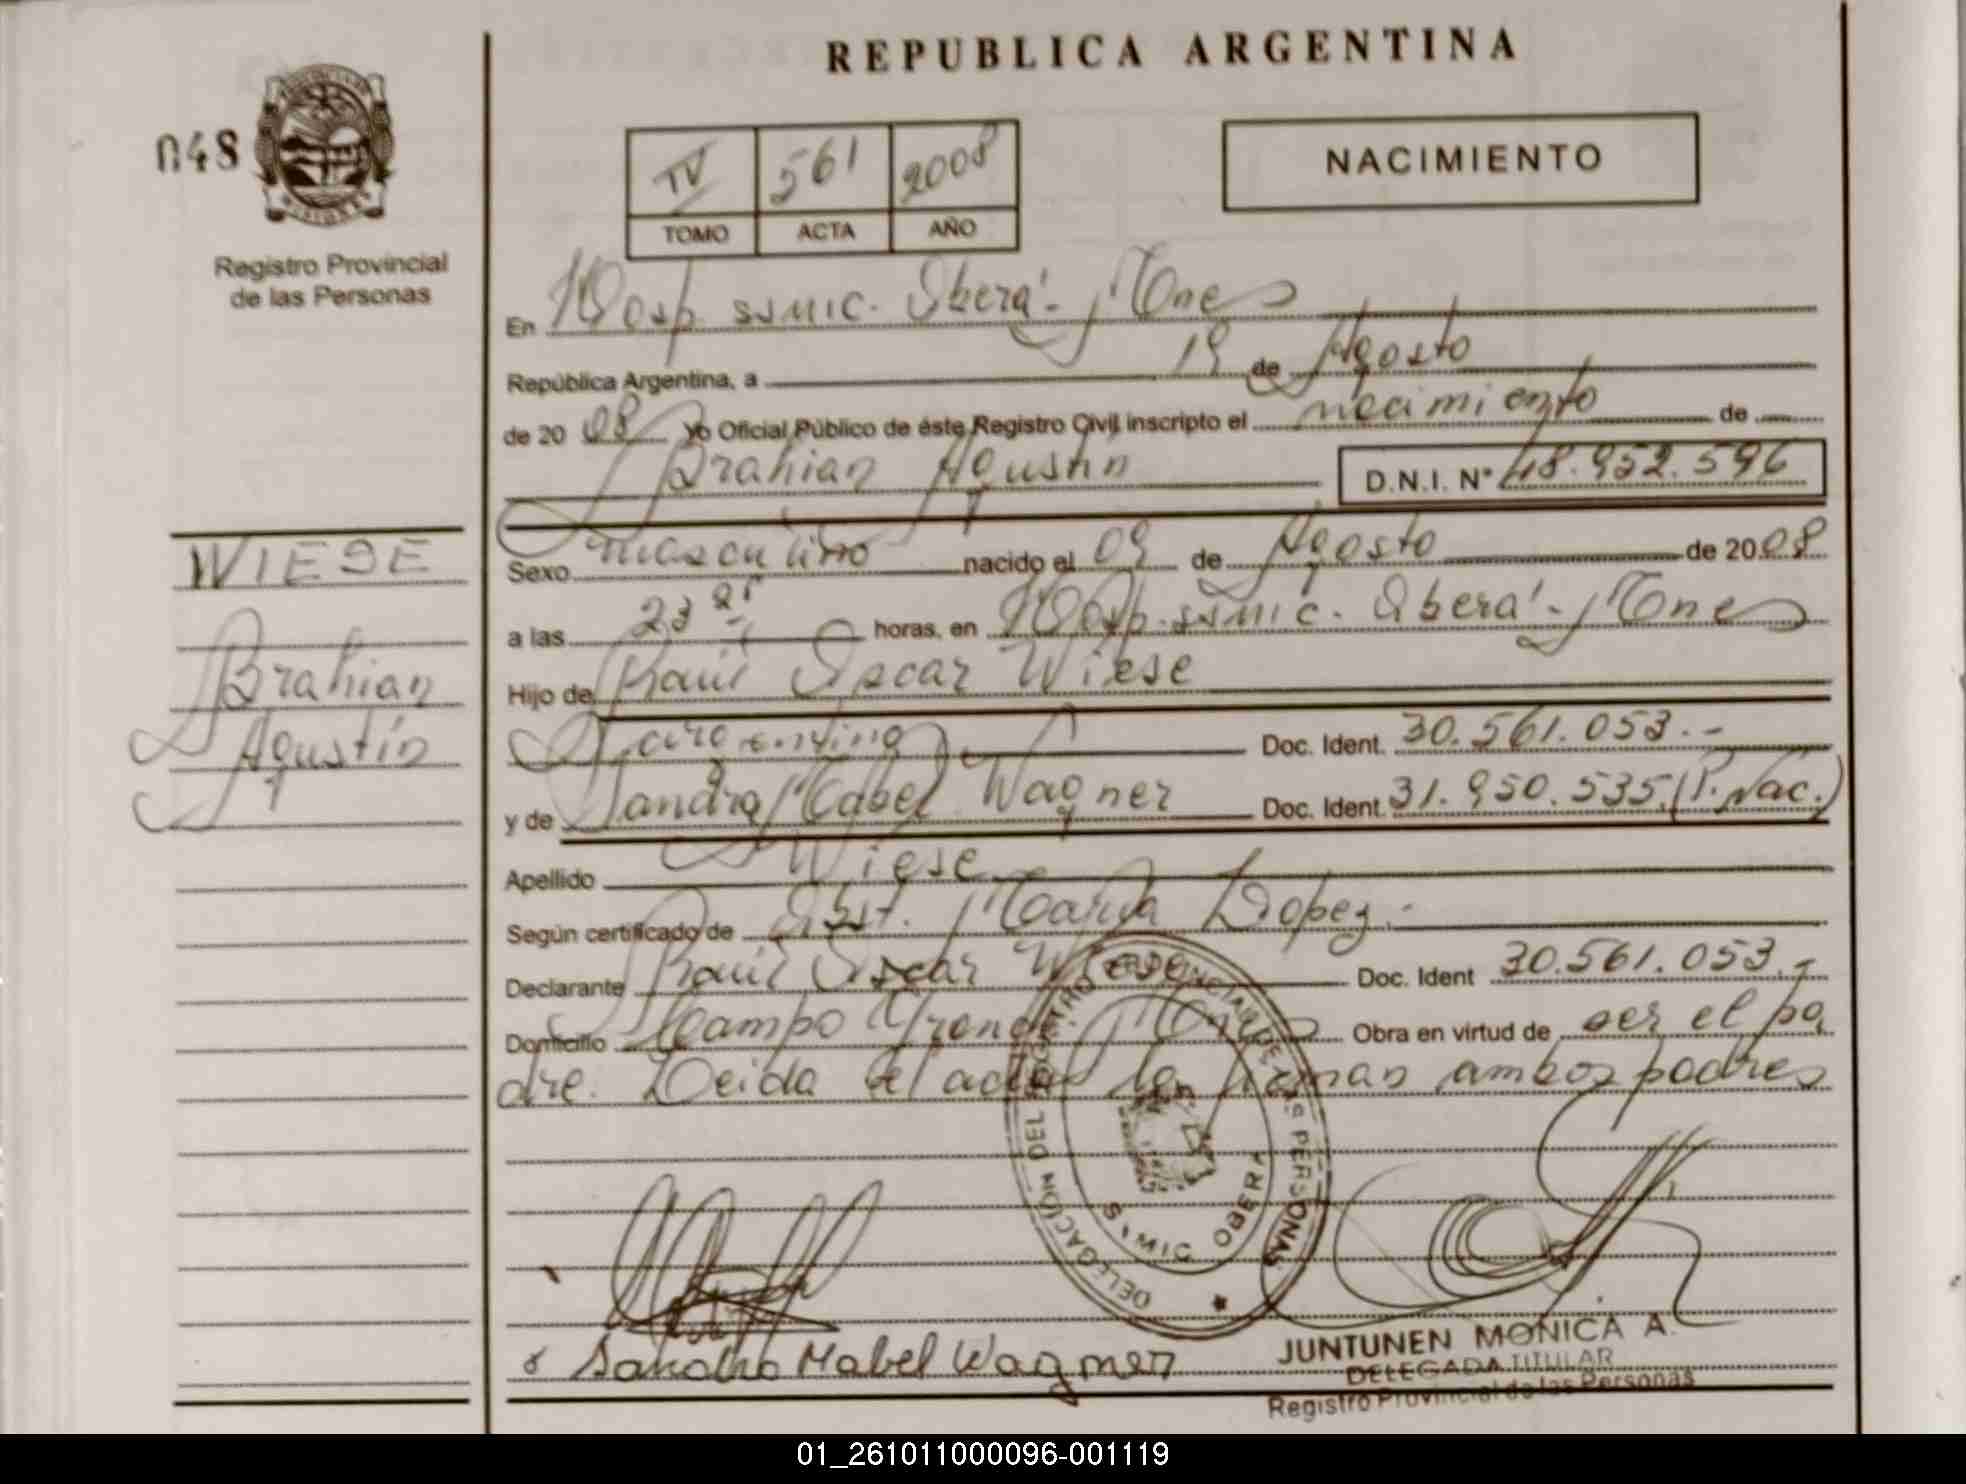 REPUBLICA ARGENTINA
048
IV 561 2008
TOMO ACTA AÑO
NACIMIENTO
Registro Provincial
de las Personas
En Hosp. SSMIC. Oberá - Mnes
República Argentina, a 19 de Agosto
de 2008 Yo Oficial Público de éste Registro Civil inscripto el nacimiento de
Brahian Agustín D.N.I. Nº 48.952.596
WIESE
Brahian
Agustín
Sexo masculino nacido el 09 de Agosto de 2008
a las 23 horas, en Hosp. SSMIC. Oberá - Mnes
Hijo de Raúl Oscar Wiese
Argentino Doc. Ident. 30.561.053.-
y de Sandra Mabel Wagner Doc. Ident. 31.950.535 (P. Nac.)
Apellido Wiese
Según certificado de Obst. María Lopez.-
Declarante Raúl Oscar Wiese Doc. Ident 30.561.053.-
Domicilio Campo Grande Mnes Obra en virtud de ser el pa
dre. Leida el acta la firman ambos padres
DELEGACION DEL REGISTRO PROVINCIAL DE LAS PERSONAS
OBERA
Sandra Mabel Wagner
JUNTUNEN MONICA A.
DELEGADA TITULAR
Registro Provincial de las Personas
01_261011000096-001119